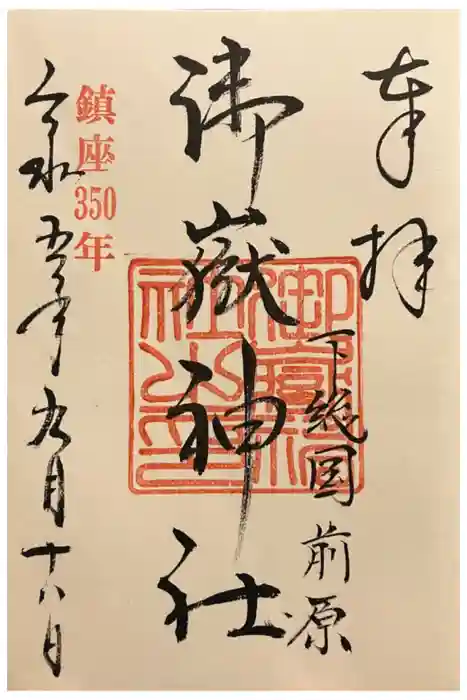 奉拝
下総国前原
御嶽神社
鎮座350年
令和五年九月十八日